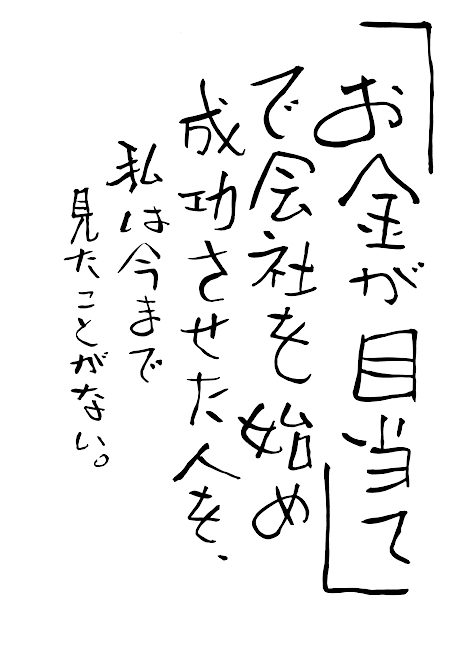 「お金が目当て」
で会社を始め
成功させた人を、
私は今まで
見たことがない。